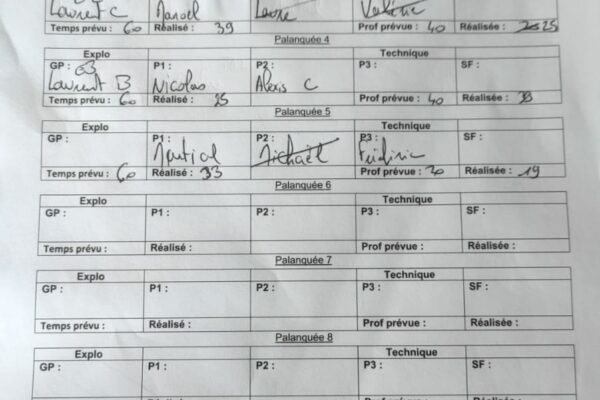 Laurent C Manoël Laure Valérie
Temps prévu : 60 Réalisé : 39 Prof prévue : 40 Réalisée : 25
Palanquée 4
Explo Technique
GP : P1 : P2 : P3 : SF :
Laurent B Nicolas Alexis C
Temps prévu : 60 Réalisé : 35 Prof prévue : 40 Réalisée :
Palanquée 5
Explo Technique
GP : P1 : P2 : P3 : SF :
Martial Michaël Frédéric
Temps prévu : 60 Réalisé : 33 Prof prévue : 20 Réalisée : 19
Palanquée 6
Explo Technique
GP : P1 : P2 : P3 : SF :
Temps prévu : Réalisé : Prof prévue : Réalisée :
Palanquée 7
Explo Technique
GP : P1 : P2 : P3 : SF :
Temps prévu : Réalisé : Prof prévue : Réalisée :
Palanquée 8
Explo Technique
GP : P1 : P2 : P3 : SF :
Temps prévu : Réalisé : Prof prévue : Réalisée :